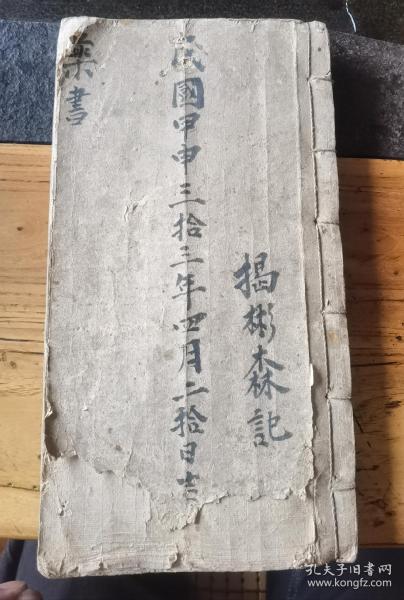 揭彬森記
民國甲申三拾三年四月二拾日吉
藥書
孔夫子旧书网
www.kongfz.com